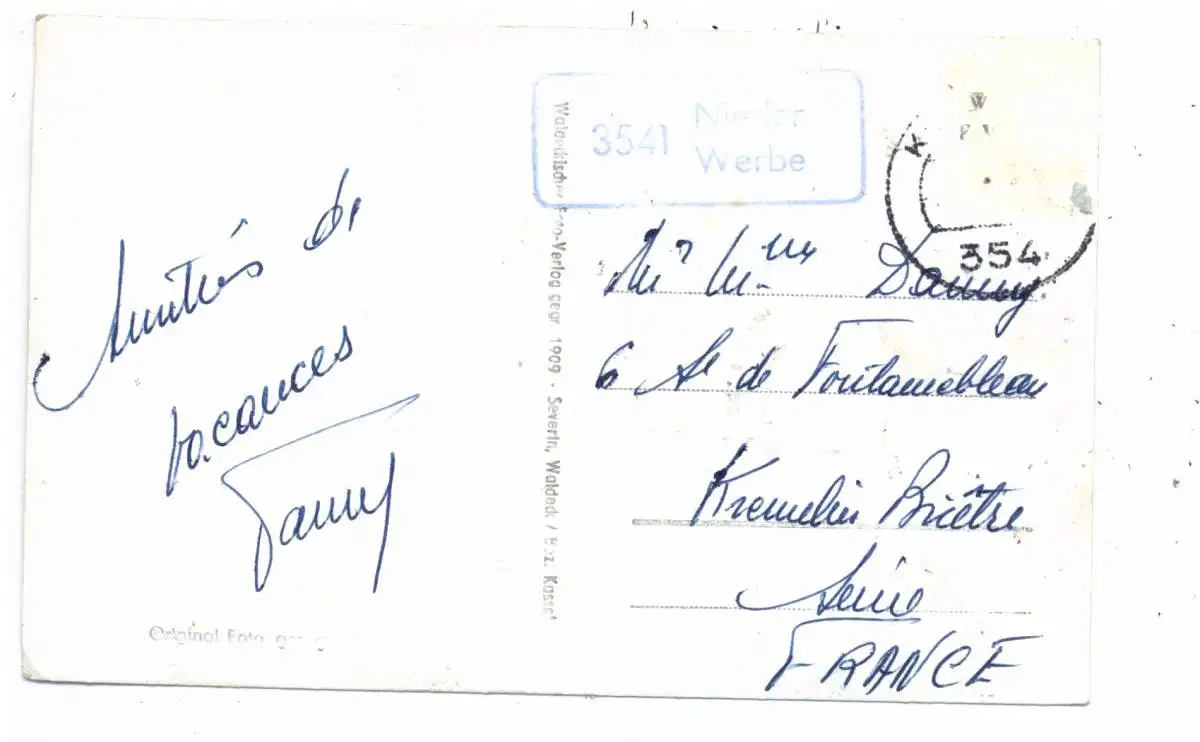 Amitiés de
vacances
Fanny
Original Foto ges. g
Waldeckischer Foto-Verlag gegr. 1909 · Severin, Waldeck / Bez. Kassel
3541 Nieder
Werbe
W
354
Mr Mme Danny
6 Av de Fontainebleau
Kremelin Bicêtre
Seine
FRANCE